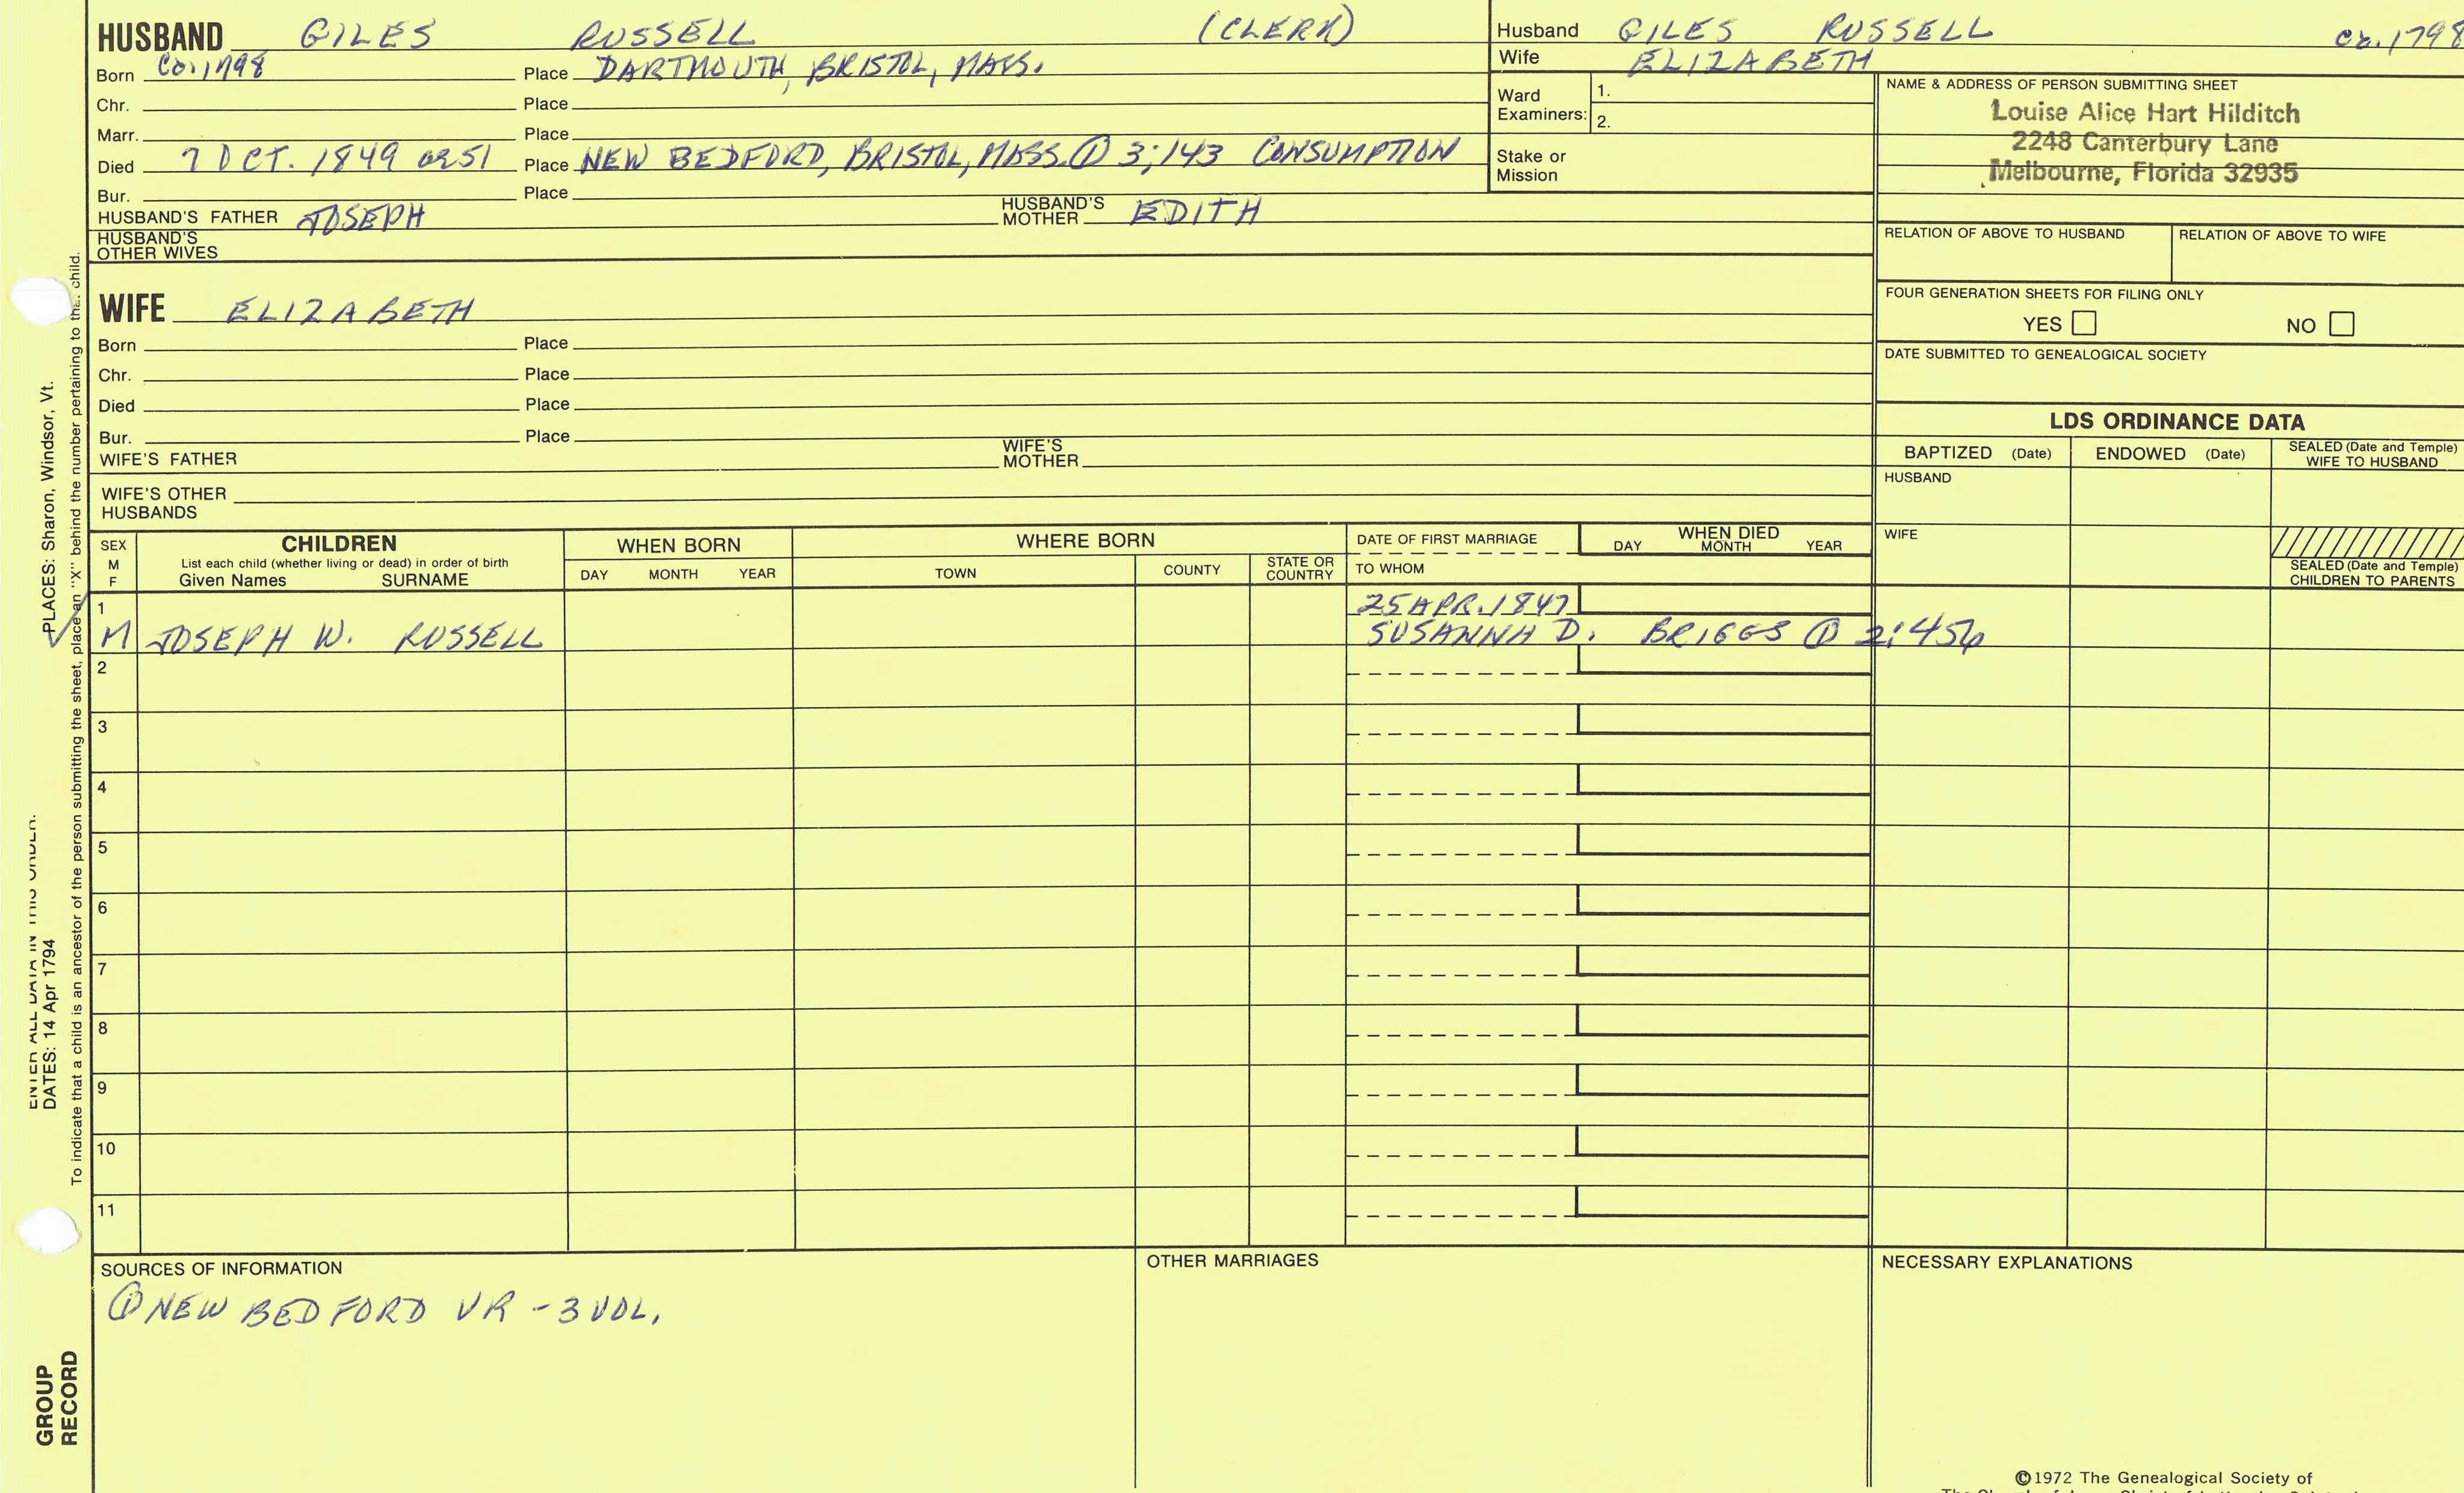 HUSBAND GILES RUSSELL (CLERK)
Born Ca. 1798 Place DARTMOUTH, BRISTOL, MASS.
Chr. Place
Marr. Place
Died 7 OCT. 1849 OR 51 Place NEW BEDFORD, BRISTOL, MASS. ① 3:143 CONSUMPTION
Bur. Place
HUSBAND'S FATHER JOSEPH HUSBAND'S MOTHER EDITH
HUSBAND'S OTHER WIVES
Husband GILES RUSSELL Ca. 1798
Wife ELIZABETH
Ward Examiners: 1.
2.
Stake or Mission
NAME & ADDRESS OF PERSON SUBMITTING SHEET
Louise Alice Hart Hilditch
2248 Canterbury Lane
Melbourne, Florida 32935
RELATION OF ABOVE TO HUSBAND RELATION OF ABOVE TO WIFE
FOUR GENERATION SHEETS FOR FILING ONLY
YES NO
DATE SUBMITTED TO GENEALOGICAL SOCIETY
WIFE ELIZABETH
Born Place
Chr. Place
Died Place
Bur. Place
WIFE'S FATHER WIFE'S MOTHER
WIFE'S OTHER HUSBANDS
LDS ORDINANCE DATA
BAPTIZED (Date) ENDOWED (Date) SEALED (Date and Temple) WIFE TO HUSBAND
HUSBAND
WIFE
SEALED (Date and Temple)
CHILDREN TO PARENTS
SEX
M
F
CHILDREN
List each child (whether living or dead) in order of birth
Given Names SURNAME
WHEN BORN
DAY MONTH YEAR
WHERE BORN
TOWN COUNTY STATE OR COUNTRY
DATE OF FIRST MARRIAGE
TO WHOM
WHEN DIED
DAY MONTH YEAR
1 25 APR. 1847
M JOSEPH W. RUSSELL SUSANNA D. BRIGGS ① 2:456
2
3
4
5
6
7
8
9
10
11
SOURCES OF INFORMATION
① NEW BEDFORD VR - 3 VOL.
OTHER MARRIAGES
NECESSARY EXPLANATIONS
©1972 The Genealogical Society of
ENTER ALL DATA IN THIS ORDER:
DATES: 14 Apr 1794 PLACES: Sharon, Windsor, Vt.
To indicate that a child is an ancestor of the person submitting the sheet, place an "X" behind the number pertaining to that child.
GROUP
RECORD